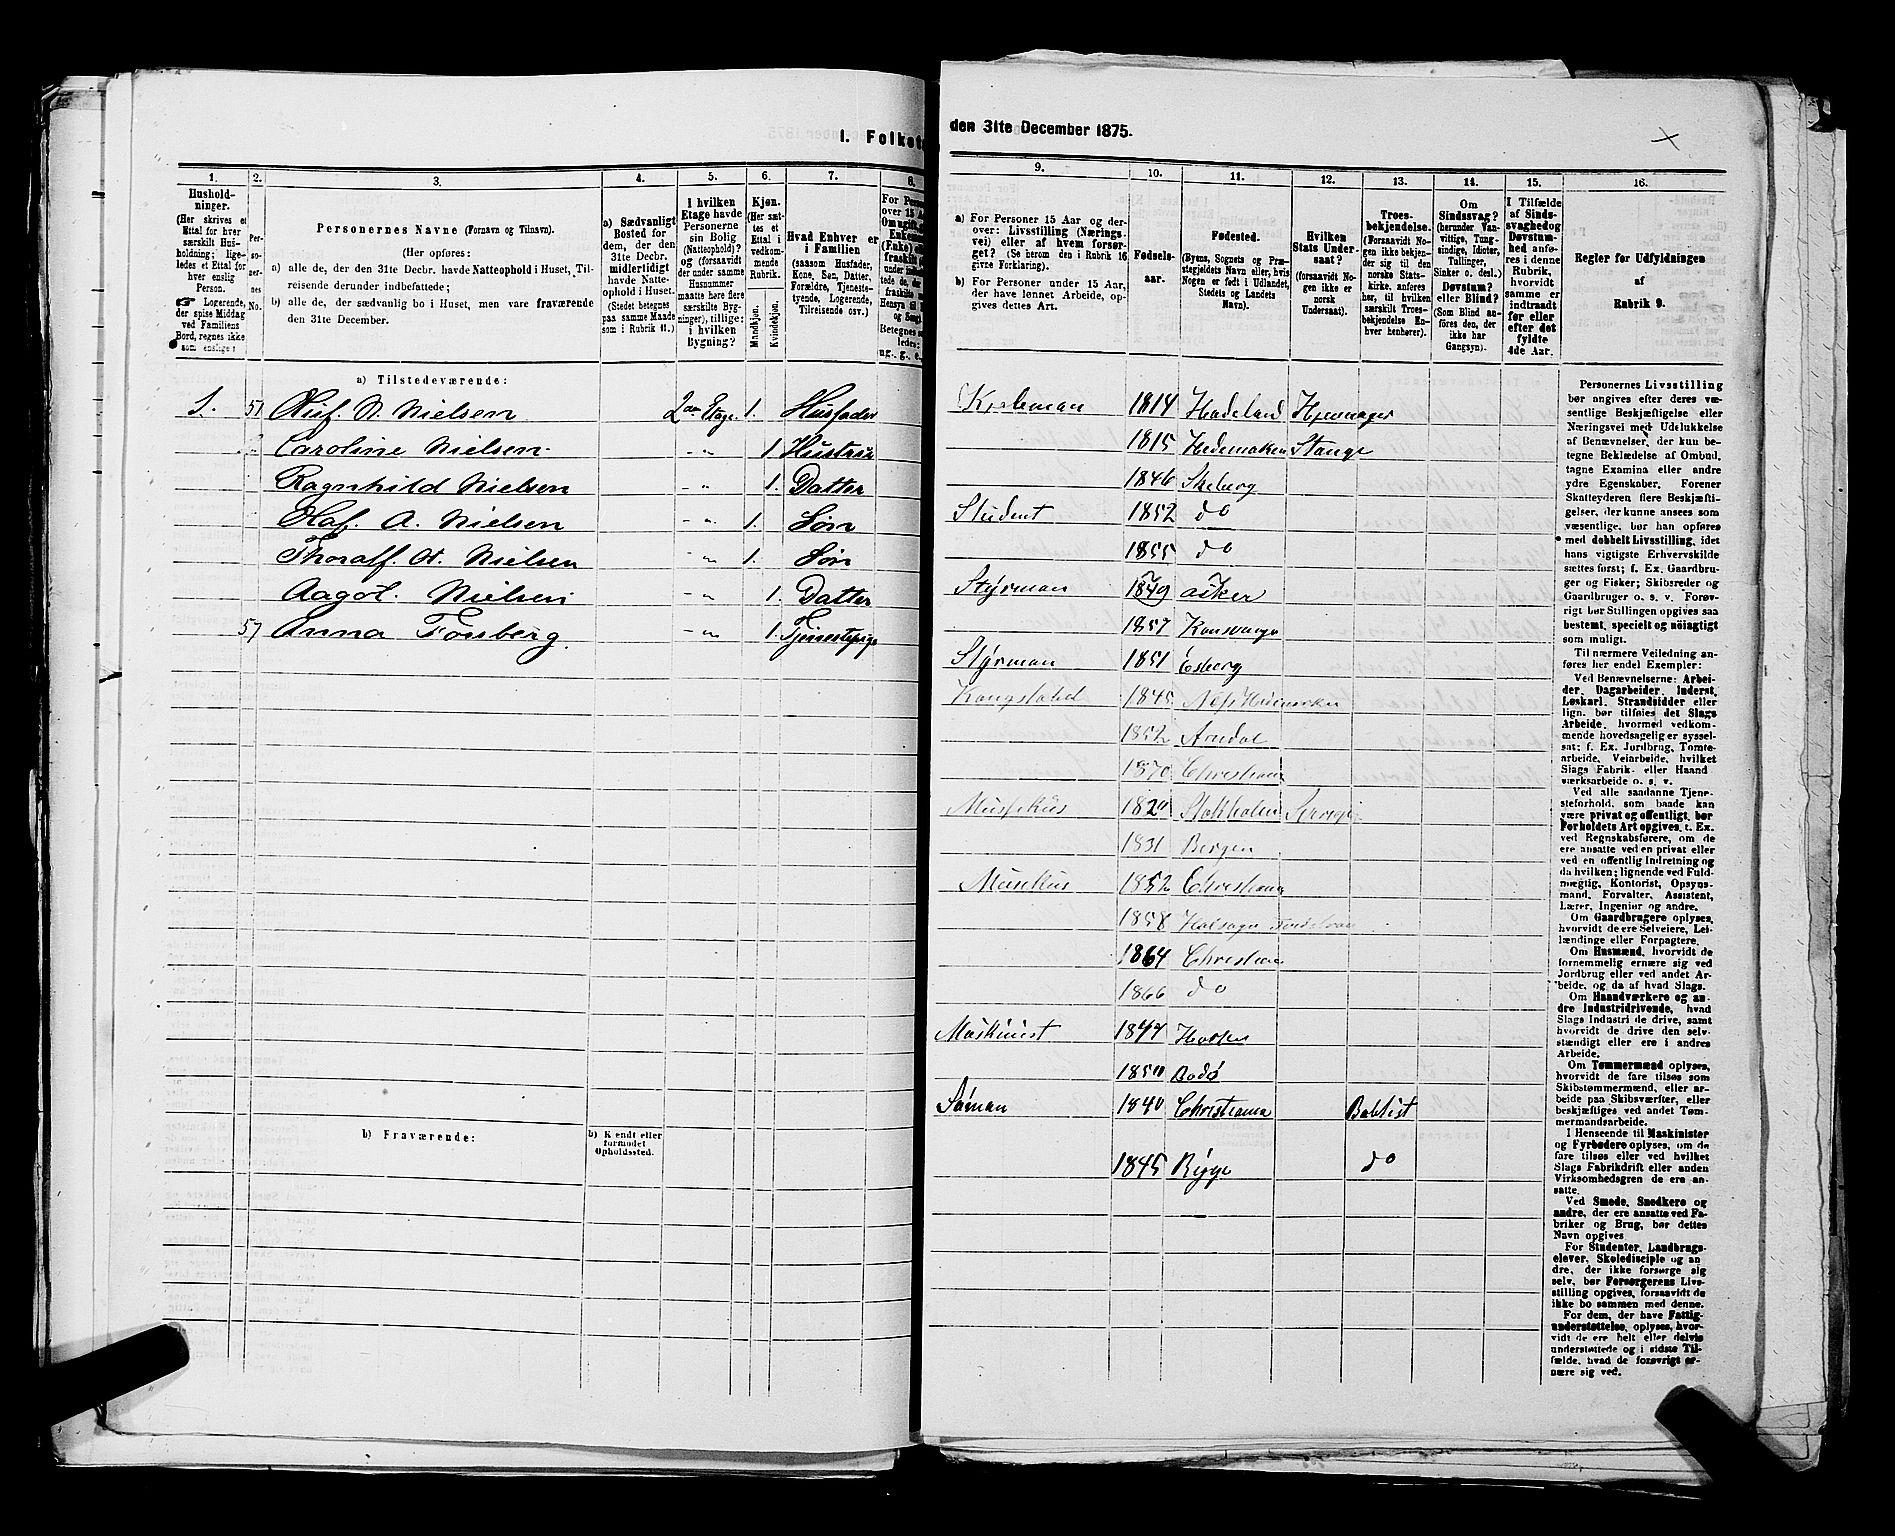 1. Folketæ
1.
Hushold-
ninger.
(Her skrives et
Ettal for hver
særskilt Hus-
holdning; lige-
ledes et Ettal for
hver enslig
Person.
Logerende,
der spise Middag
ved Familiens
Bord, regnes ikke
som enslige)
2.
Per-
so-
ner-
nes
No.
3.
Personernes Navne (Fornavn og Tilnavn).
(Her opføres:
a) alle de, der den 31te Decbr. havde Natteophold i Huset, Til-
reisende derunder indbefattede;
b) alle de, der sædvanlig bo i Huset, men vare fraværende
den 31te December.
4.
a) Sædvanligt
Bosted for
dem, der den
31te Decbr.
midlertidigt
havde Natte-
ophold i Huset.
(Stedet betegnes
paa samme Maade
som i Rubrik 11.)
5.
I hvilken
Etage havde
Personerne
sin Bolig
(Natteophold)?
og (forsaavidt
der under samme
Husnummer
maatte høre flere
særskilte Byg-
ninger), tillige:
i hvilken
Bygning?
6.
Kjøn.
(Her sæt-
tes et
Ettal i
vedkom-
mende
Rubrik.
Mandkjøn.
Kvindekjøn.
7.
Hvad Enhver er
i Familien
(saasom Husfader,
Kone, Søn, Datter,
Forældre, Tjeneste-
tyende, Logerende,
Tilreisende osv.)
8.
a) Tilstedeværende:
1. 51 W. Nielsen 2den Etage. 1. Husfader
Caroline Nielsen. - " 1. Hustru
Ragnhild Nielsen - " 1. Datter
A. Nielsen - " 1. Søn
Thoralf. Nielsen - " 1. Søn
Aagot. Nielsen - " 1. Datter
57 Anna Fossberg. - " 1. Tjenestepige
b) Fraværende:
b) Kjendt eller
formodet
Opholdssted.
den 31te December 1875.
9.
a) For Personer 15 Aar og der-
over: Livsstilling (Nærings-
vei) eller af hvem forsør-
get? (Se herom den i Rubrik 16
givne Forklaring).
b) For Personer under 15 Aar,
der have lønnet Arbeide, op-
gives dettes Art.
10.
Fødsels-
aar.
11.
Fødested.
(Byens, Sognets og Præ-
stegjeldets Navn eller, hvis
Nogen er født i Udlandet,
Stedets og Landets
Navn).
12.
Hvilken
Stats Under-
saat?
(forsaavidt No-
gen ikke er
norsk
Undersaat).
13.
Troes-
bekjendelse.
(Forsaavidt No-
gen ikke bekjen-
der sig til den
norske Stats-
kirke, anføres
her, til hvilken
særskilt Troes-
bekjendelse En-
hver henhører).
14.
Om
Sindssvag?
(herunder Van-
vittige, Tung-
sindige, Idioter,
Tullinger,
Sinker o. desl.)
Døvstum?
eller Blind?
(Som Blind an-
føres den, der
ikke har
Gangsyn).
15.
I Tilfælde
af Sinds-
svaghed og
Døvstum-
hed anfø-
res i denne
Rubrik,
hvorvidt
samme er
indtraadt
før eller
efter det
fyldte
4de Aar.
16.
Regler for Udfyldningen
af
Rubrik 9.
1814 Hadeland
1815 Hedemarken Stange
1846 Skeberg
Student 1852 do
1855 do
Styrman 1849 Asker
1857
Styrman 1851 Esberg
1845
1852 Arndal
1870 Christiania
Musikus Stokholm
1831 Bergen
Musikus 1852 Christiania
1858
1864 Christiania
1866 do
Maskinist
1850 Bodø
Søman 1840 Christiania Babtist
1845 Rygge do
Personernes Livsstilling
bør angives efter deres væ-
sentlige Beskjæftigelse eller
Næringsvei med Udelukkelse
af Benævnelser, der kun be-
tegne Beklædelse af Ombud,
tagne Examina eller andre
ydre Egenskaber. Forener
Skatteyderen flere Beskjæfti-
gelser, der kunne ansees som
væsentlige, bør han opføres
med dobbelt Livsstilling, idet
hans vigtigste Erhvervskilde
sættes først; f. Ex. Gaardbru-
ger og Fisker; Skibsreder og
Gaardbruger o. s. v. Forøv-
rigt bør Stillingen opgives saa
bestemt, specielt og nöiagtigt
som muligt.
Til nærmere Veiledning an-
føres her endel Exempler:
Ved Benævnelserne: Arbei-
der, Dagarbeider, Inderst,
Løskarl, Strandsidder eller
lign. bør tilføies det Slags
Arbeide, hvormed vedkom-
mende hovedsagelig er syssel-
sat; f. Ex. Jordbrug, Tomte-
arbeide, Veiarbeide, hvilket
Slags Fabrik- eller Haand
værksarbeide o. s. v.
Ved alle saadanne Tjene-
steforhold, som baade kan
være privat og offentligt, bør
Forholdets Art opgives, t. Ex.
ved Regnskabsførere, om de
ere ansatte ved en privat eller
ved en offentlig Indretning og
da hvilken; lignende ved Fuld-
mægtig, Kontorist, Opsyns-
mand, Forvalter, Assistent,
Lærer, Ingeniør og andre.
Om Gaardbrugere oplyses,
hvorvidt de ere Selveiere, Lei-
lændinge eller Forpagtere.
Om Husmænd, hvorvidt de
fornemmelig ernære sig ved
Jordbrug eller ved andet Ar-
beide, og da af hvad Slags.
Om Haandværkere og an-
dre Industridrivende, hvad
Slags Industri de drive, samt
hvorvidt de drive den selv-
stændigt eller ere i andres
Arbeide.
Om Tømmermænd oplyses,
hvorvidt de fare tilsøs som
Skibstømmermænd, eller ar-
beide paa Skibsværfter, eller
beskjæftiges ved andet Tøm-
mermandsarbeide.
I Henseende til Maskinister
og Fyrbødere oplyses, om de
fare tilsøs eller ved hvilket
Slags Fabrikdrift eller anden
Virksomhedsgren de ere an-
satte.
Ved Smede, Snedkere og
andre, der ere ansatte ved Fa-
briker og Brug, bør dettes
Navn opgives.
For Studenter, Landbrugs-
elever, Skoledisciple og an
dre, der ikke forsørge sig
selv, bør Forsørgerens Livs-
stilling opgives, forsaavidt de
ikke bo sammen med denne.
For dem, der have Fattig-
understøttelse, oplyses, hvor-
vidt de ere helt eller delvis
understøttede og i sidste Til-
fælde, hvad de forøvrigt er-
nære sig ved.